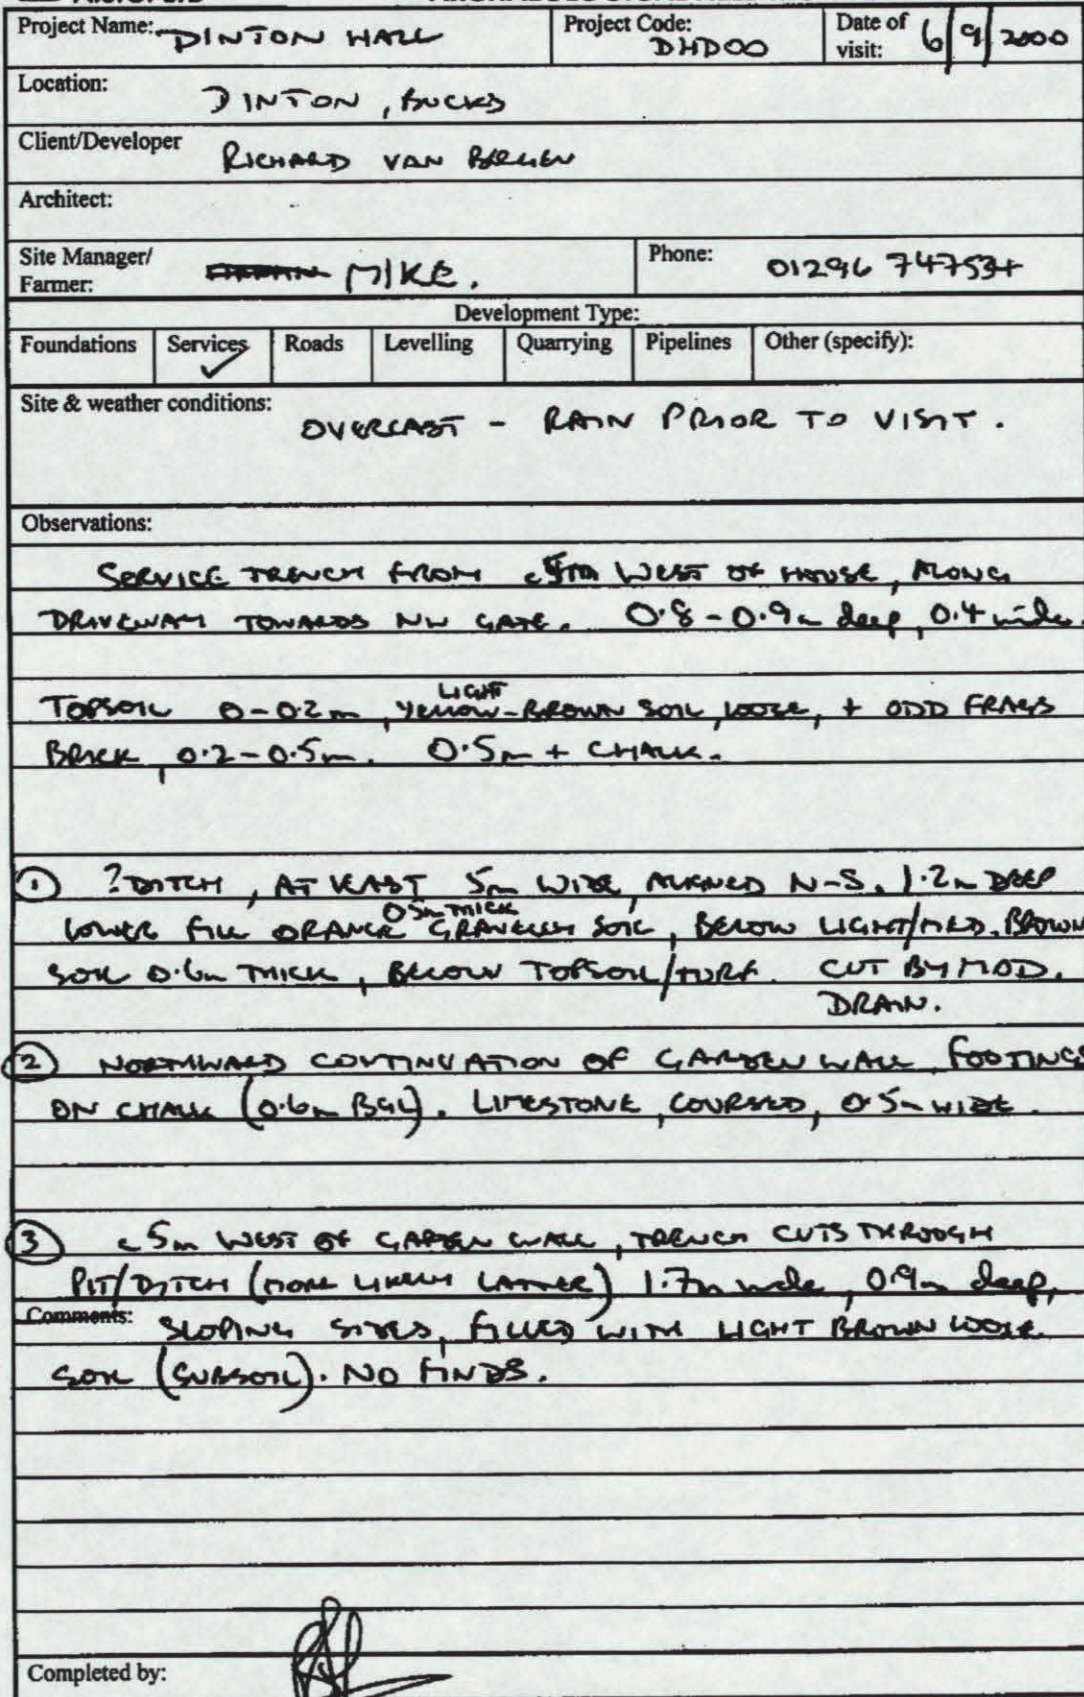 Project Name: DINTON HALL Project Code: DHD00 Date of visit: 6/9/2000
Location: DINTON, BUCKS
Client/Developer RICHARD VAN BERGEN
Architect:
Site Manager/ Farmer: MIKE. Phone: 01296 747534
Development Type:
Foundations Services ✓ Roads Levelling Quarrying Pipelines Other (specify):
Site & weather conditions: OVERCAST - RAIN PRIOR TO VISIT.
Observations:
SERVICE TRENCH FROM WEST OF HOUSE, ALONG
DRIVEWAY TOWARDS NW GATE. 0.8-0.9m deep, 0.4 wide.
TOPSOIL 0-0.2m, LIGHT YELLOW-BROWN SOIL, LOOSE, + ODD FRAGS
BRICK, 0.2-0.5m. 0.5m + CHALK.
① ?DITCH, AT LEAST 5m WIDE, ALIGNED N-S, 1.2m DEEP
LOWER FILL ORANGE 0.5m THICK GRAVELLY SOIL, BELOW LIGHT/MED. BROWN
SOIL 0.6m THICK, BELOW TOPSOIL/TURF. CUT BY MOD.
DRAIN.
② NORTHWARD CONTINUATION OF GARDEN WALL, FOOTINGS
ON CHALK (0.6m BGL). LIMESTONE, COURSED, 0.5m WIDE.
③ c5m WEST OF GARDEN WALL, TRENCH CUTS THROUGH
PIT/DITCH (MORE LIKELY LATTER) 1.7m wide, 0.9m deep,
Comments: SLOPING SIDES, FILLED WITH LIGHT BROWN LOOSE
SOIL (SUBSOIL). NO FINDS.
Completed by: